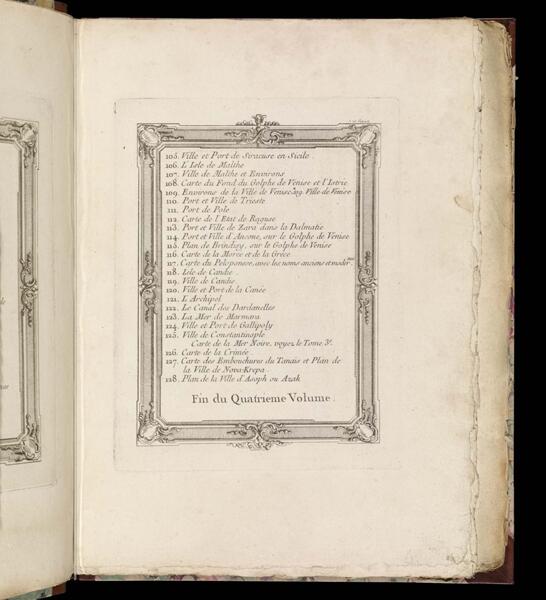 105. Ville et Port de Siracuse en Sicile.
106. L'Isle de Malthe
107. Ville de Malthe et Environs
108. Carte du Fond du Golphe de Venise et l'Istrie
109. Environs de la Ville de Venise 109. Ville de Venise
110. Port et Ville de Trieste
111. Port de Pole
112. Carte de l'Etat de Raguse
113. Port et Ville de Zara dans la Dalmatie
114. Port et Ville d'Ancone, sur le Golphe de Venise
115. Plan de Brindisy, sur le Golphe de Venise
116. Carte de la Morée et de la Grèce
117. Carte du Peloponese, avec les noms anciens et moder.nes
118. Isle de Candie.
119. Ville de Candie.
120. Ville et Port de la Canée
121. L'Archipel
122. Le Canal des Dardanelles
123. La Mer de Marmara
124. Ville et Port de Gallipoly
125. Ville de Constantinople
Carte de la Mer Noire, voyez le Tome 3e.
126. Carte de la Crimée
127. Carte des Embouchures du Tanais et Plan de
la Ville de Nova-Krepa.
128. Plan de la Ville d'Asoph ou Azak
Fin du Quatrieme Volume.